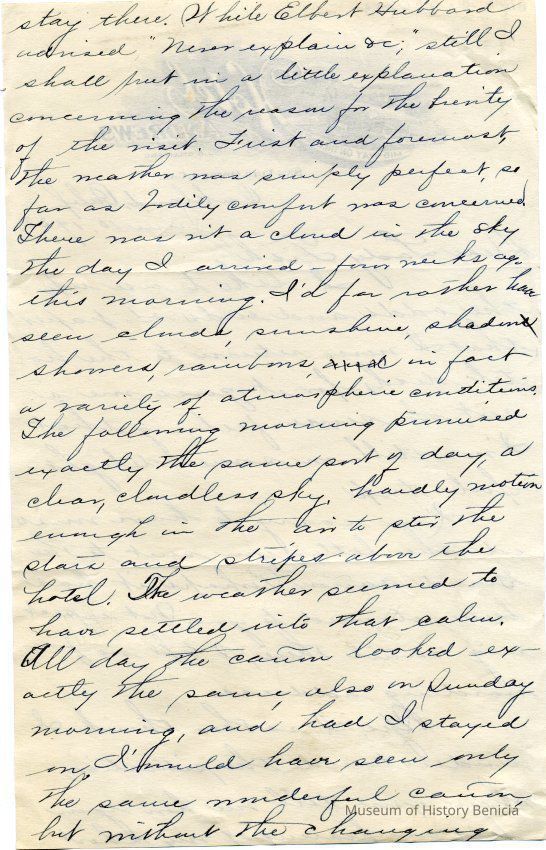 stay there. While Elbert Hubbard
advised "Never explain &c," still I
shall put in a little explanation
concerning the reason for the brevity
of the visit. First and foremost,
the weather was simply perfect, so
far as bodily comfort was concerned.
There was not a cloud in the sky
the day I arrived - four weeks ago
this morning. I'd far rather have
seen clouds, sunshine, shadows
showers, rainbows, in fact
a variety of atmospheric conditions.
The following morning promised
exactly the same sort of day, a
clear, cloudless sky, hardly motion
enough in the air to stir the
stars and stripes above the
hotel. The weather seemed to
have settled into that calm.
All day the cañon looked ex-
actly the same, also on Sunday
morning, and had I stayed
on, I would have seen only
the same wonderful cañon,
but without the changing
Museum of History Benicia